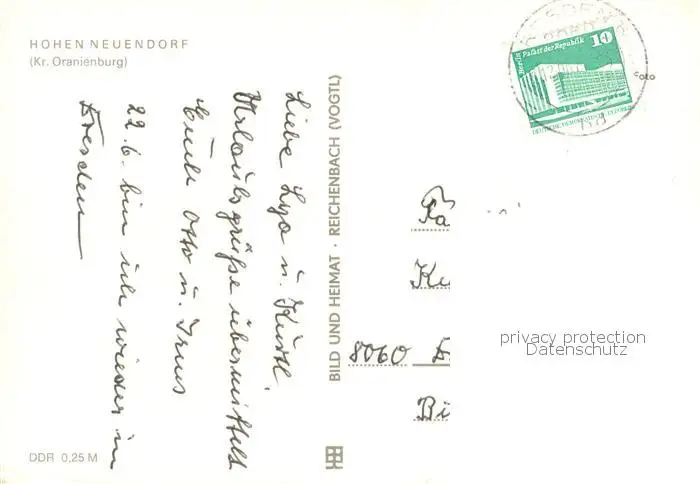 HOHEN NEUENDORF
(Kr. Oranienburg)
Liebe Lya u. Kurtl.
Urlaubsgrüße übermittelt
Euch Otto u.
22.6. bin ich wieder in
Dresden
DDR 0,25 M
BILD UND HEIMAT · REICHENBACH (VOGTL)
Berlin Palast der Republik
10
DEUTSCHE DEMOKRATISCHE REPUBLIK
Foto
Ku
8060
Bi
privacy protection
Datenschutz